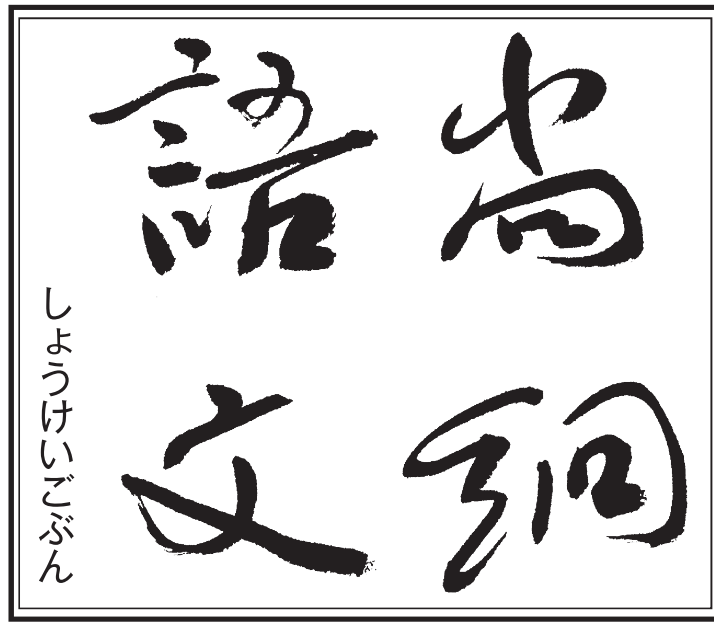 尚絅
語文
しょうけいごぶん